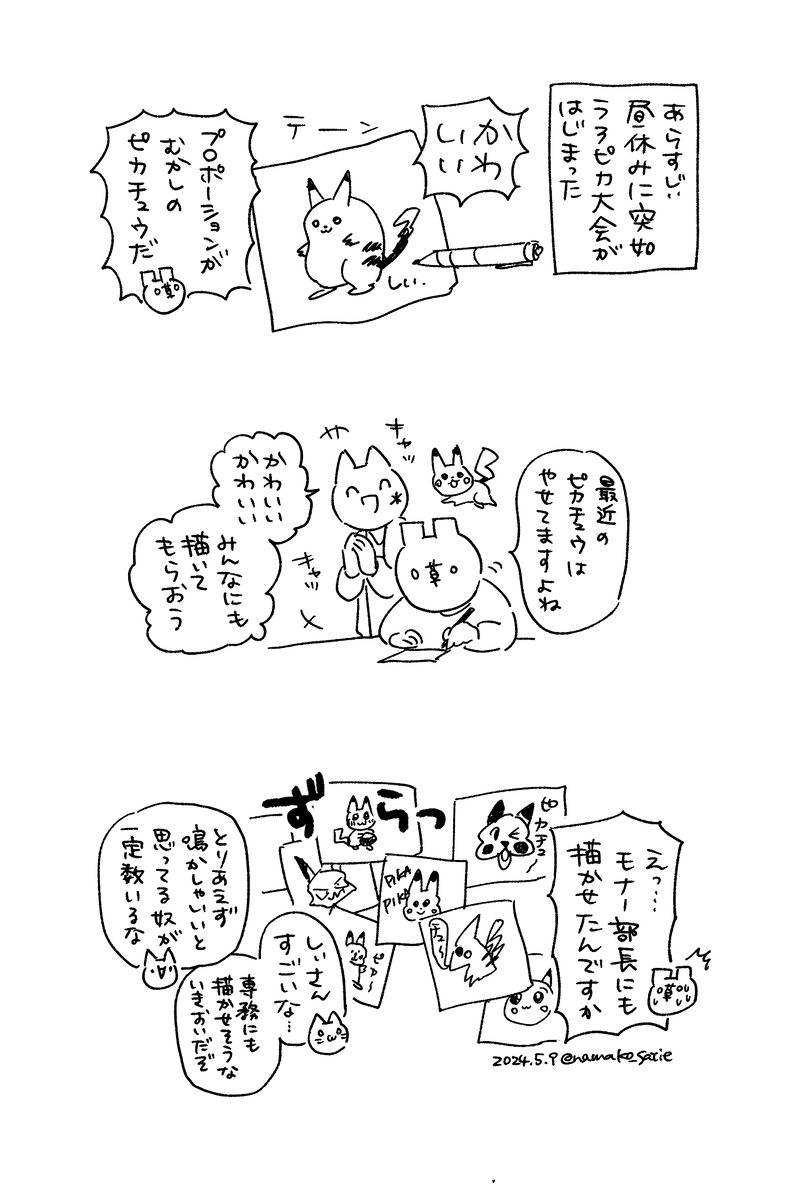 あらすじぃ
昼休みに突如
うろピカ大会が
はじまった
かわ
いい
テーン
しぃ.
プロポーションが
むかしの
ピカチュウだ
草
最近の
ピカチュウは
やせてますよね
キャッ
キャッ
草
かわいい
かわいい
みんなにも
描いて
もらおう
えっ…
モナー部長にも
描かせたんですか
草
ずらっ
ピカチュ
PIKA
PIKA
チュ〜
ピカ〜
しぃさん
すごいな…
専務にも
描かせそうな
いきおいだぞ
とりあえず
鳴かしゃいいと
思ってる奴が
一定数いるな
2024.5.9 @namako_satie